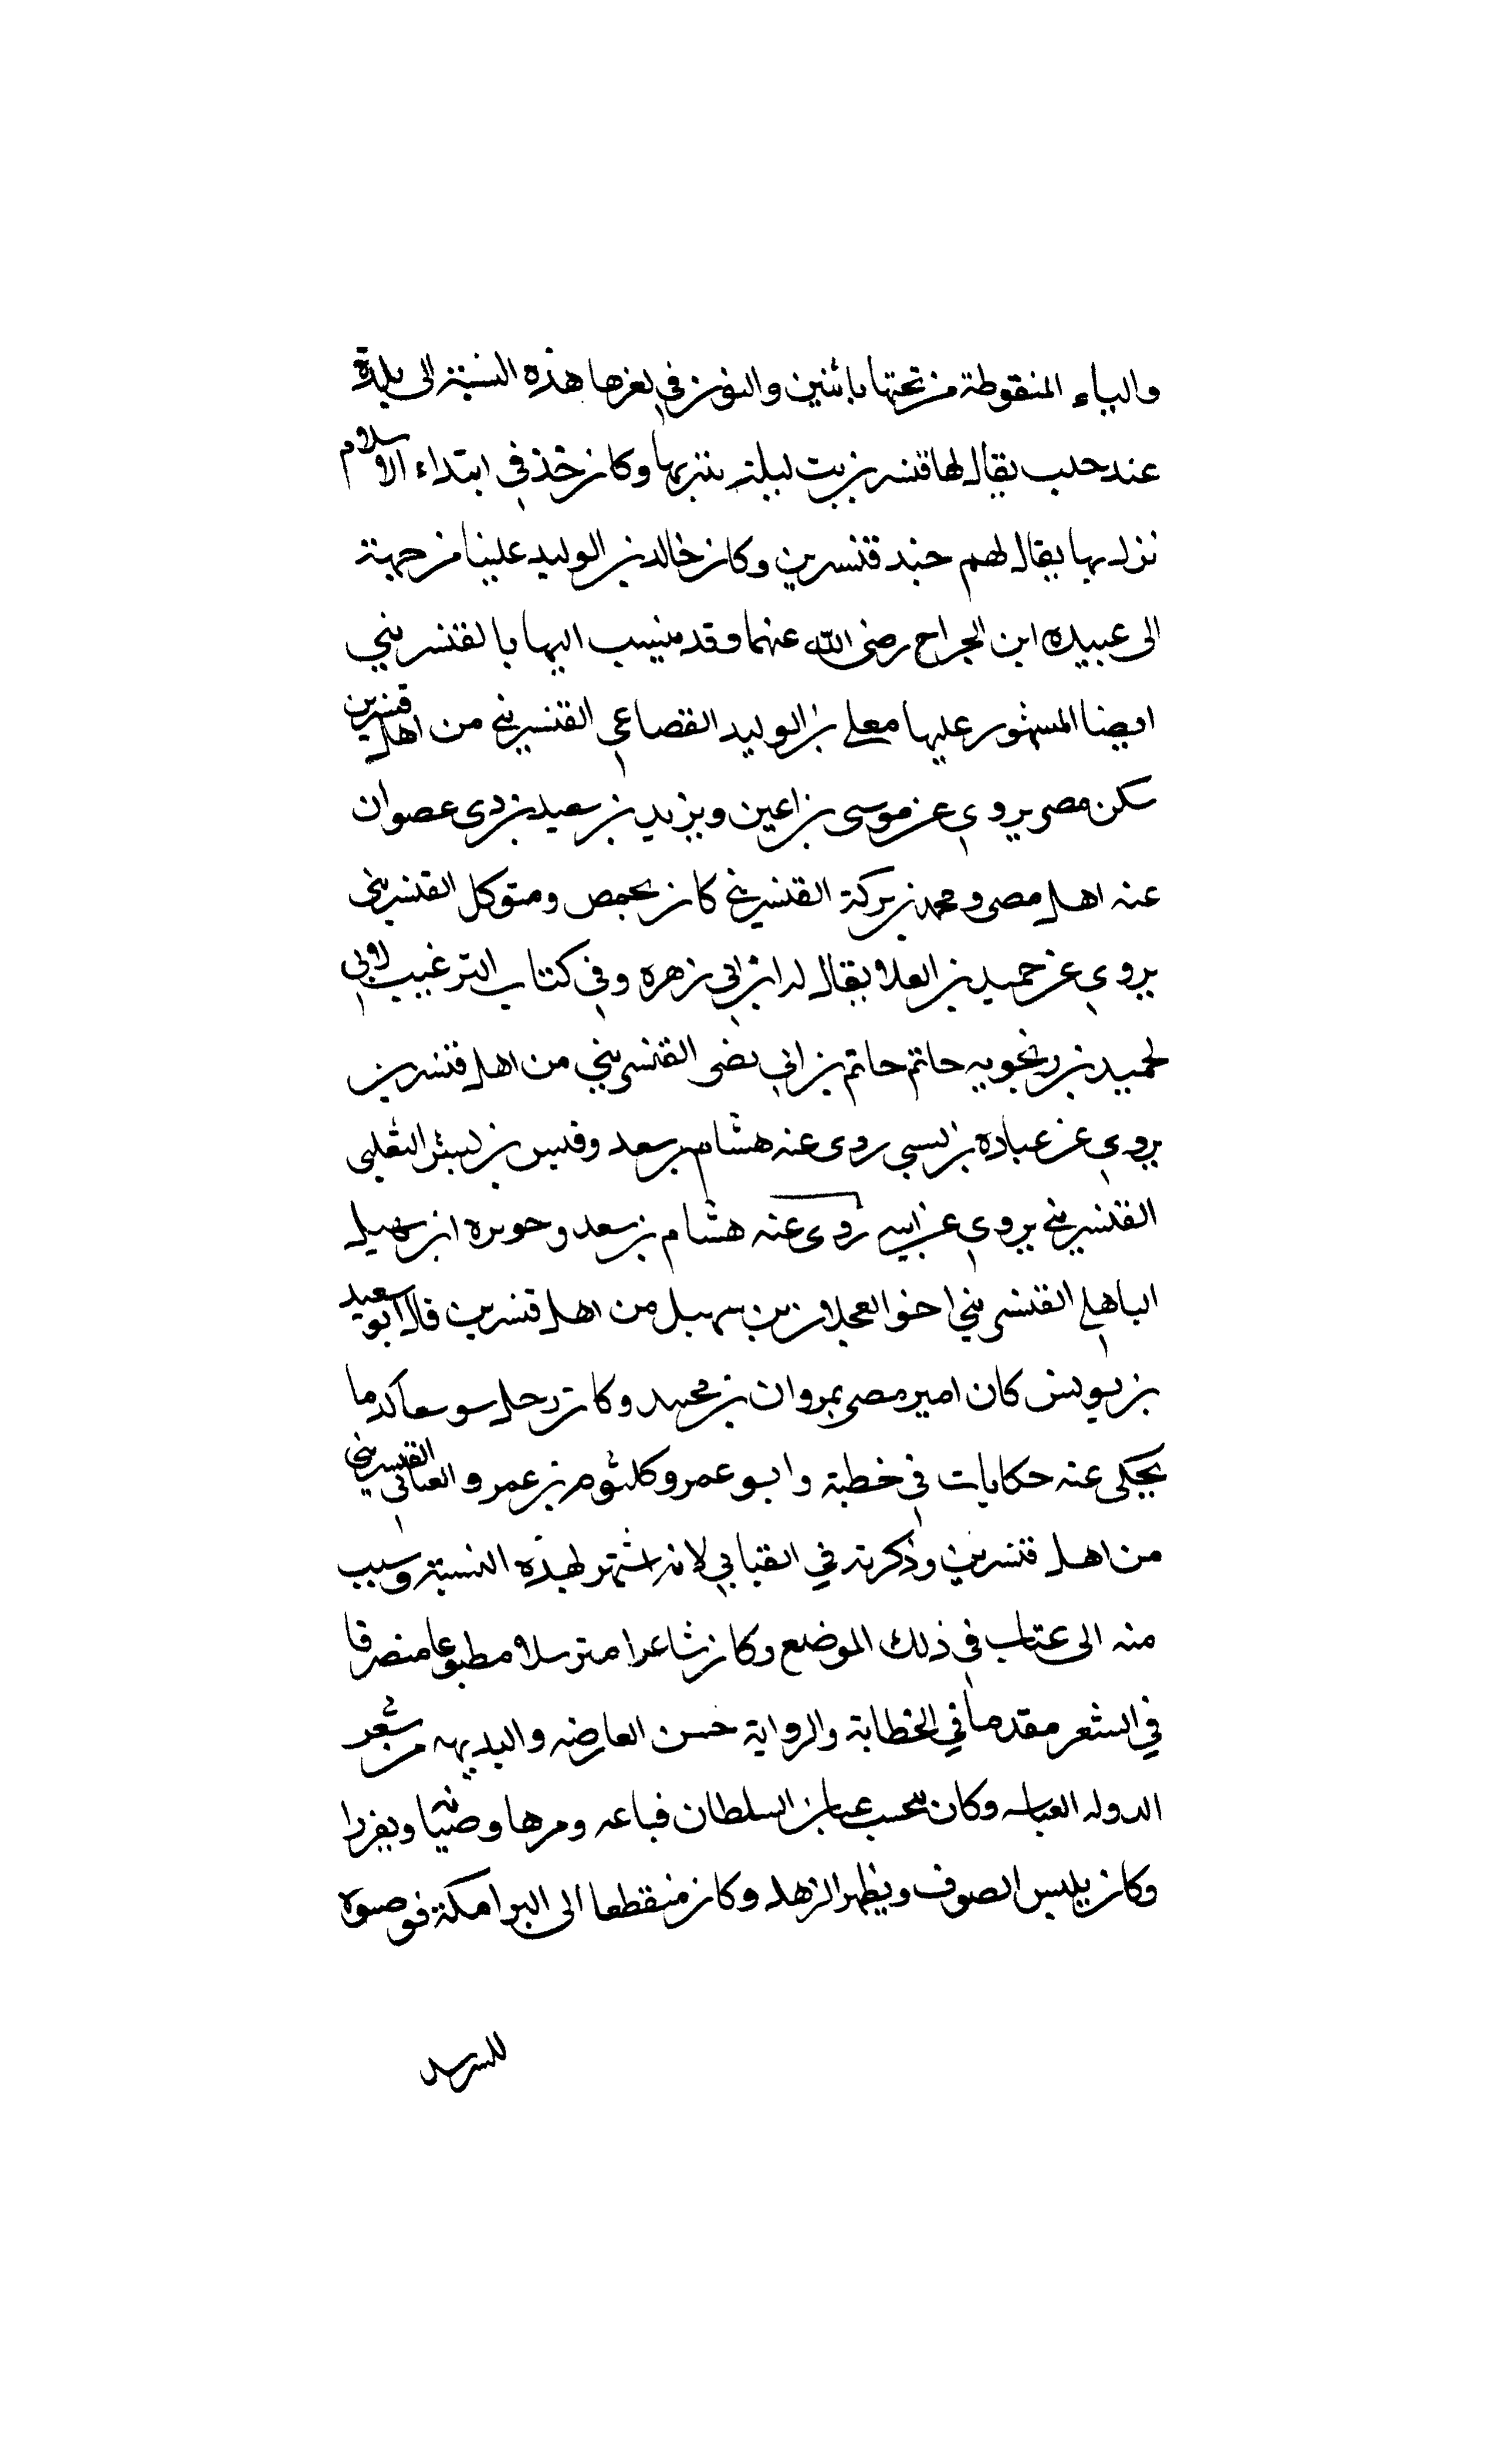 والياء المنقوطة من تحتها باثنين والنون في اخرها هذه النسبة الى بلدة
عند حلب يقال لها قنسرين بت ليلة بها وكان في ابتداء الاسلام
نزل بها يقال لهم جند قنسرين وكان خالد بن الوليد علينا من جهة
الى عبيده ابن الجراح رضى الله عنهما وقد ينسب اليها بالقنسريني
ايضا المشهور عليها معلى بن الوليد القضاعي القنسريني من اهل قنسرين
سكن مصر يروي عن موسى بن اعين ويزيد بن سعيد بن ذى عصوان
عنه اهل مصر ومحمد بن بركة القنسريني كان بحمص ومتوكل القنسريني
يروي عن حميد بن العلا يقال له ابن ابي زهره وفي كتاب الترغيب لابي
لحميد بن زنجويه حاتم حاتم بن ابي نضر القنسريني من اهل قنسرين
يروي عن عباده بن نسي روى عنه هشام بن سعد وقيس بن بشر الثعلبي
القنسريني يروي عن ابيه روى عنه هشام بن سعد وحوثره ابن سهيل
الباهلي القنسريني اخو العجلان بن سهيل من اهل قنسرين قال ابو سعيد
بن يونس كان امير مصر بمروان بن محمد وكان رجل
يحكى عنه حكايات في خطبة وابو عمرو كلثوم بن عمرو العتابي القنسريني
من اهل قنسرين وذكرته في العتابي لانه اشتهر لهذه النسبة وسبب
منه الى عتاب في ذلك الموضع وكان شاعرا مترسلا مطبوعا متصرفا
في الشعر مقدما في الخطابة والرواية حسن العارضه والبديهه من شعر
الدوله العباسه وكان السلطان
وكان يلبس الصوف ويظهر الزهد وكان منقطعا الى البرامكة فوصوه